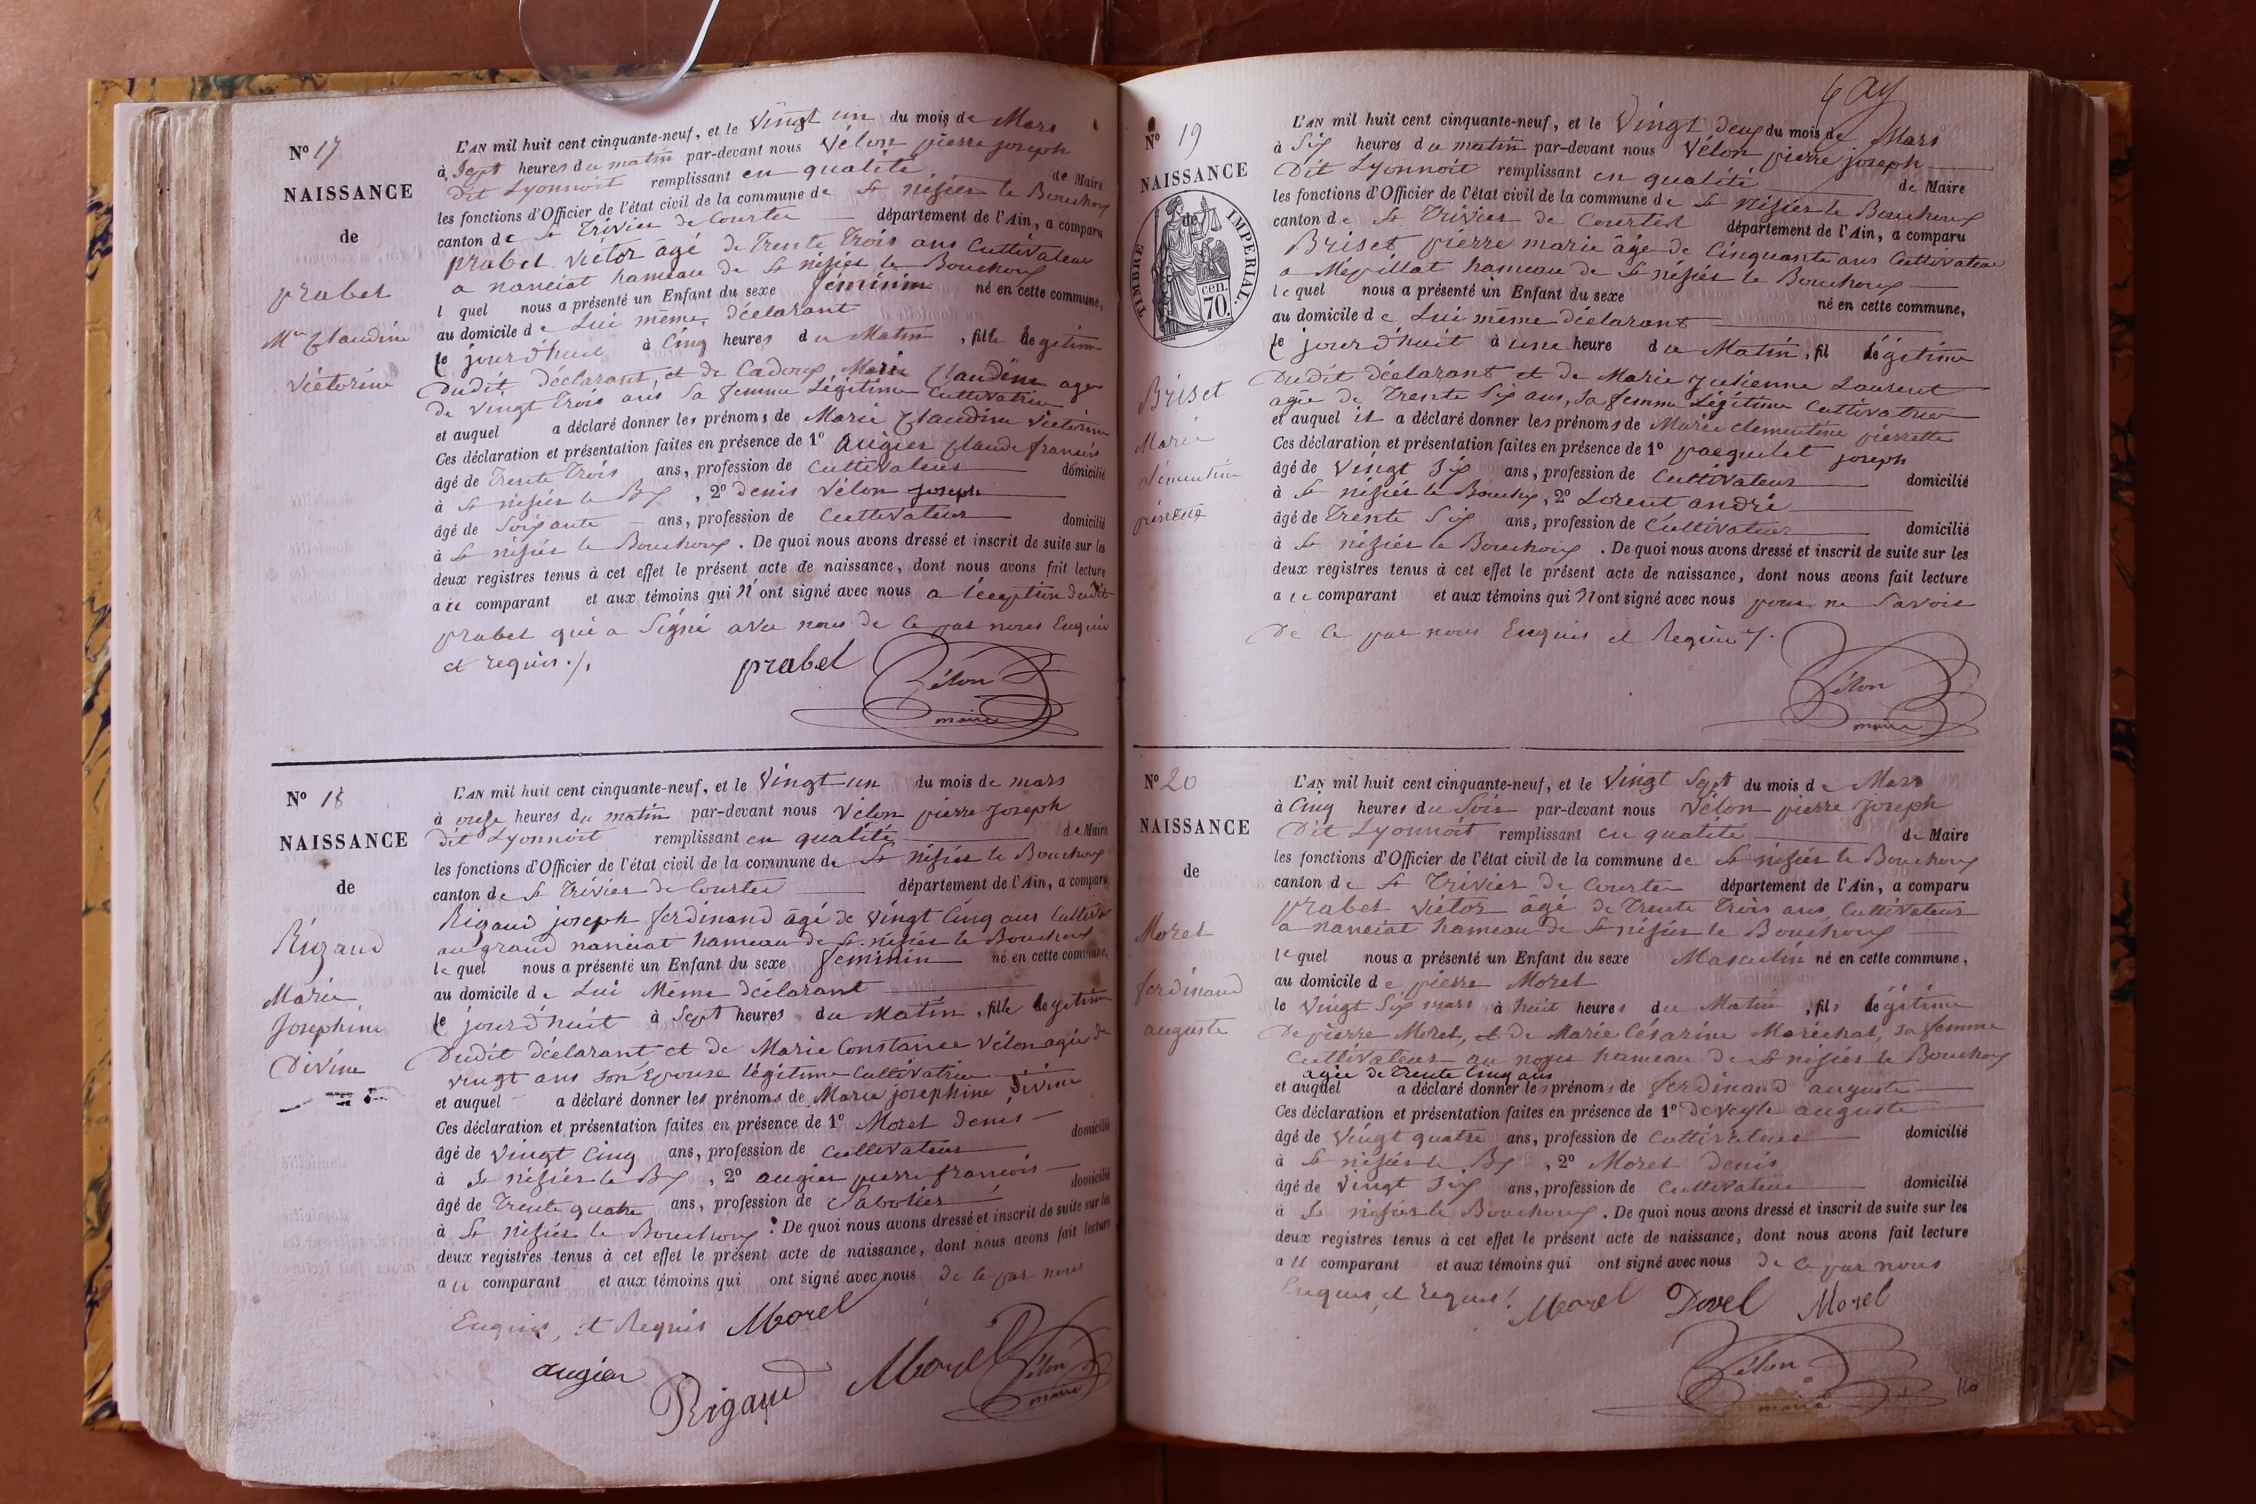 N° 17
NAISSANCE
de
prabel
Mie Claudine
Victorine
L'AN mil huit cent cinquante-neuf, et le Vingt un du mois de Mars
à Sept heures du matin par-devant nous Vélon pierre joseph
Dit Lyonnoit remplissant en qualité de Maire
les fonctions d'Officier de l'état civil de la commune de St nisier le Bouchoux
canton de St Trivier de Courtes département de l'Ain, a comparu
prabel victor âgé de Trente Trois ans Cultivateur
a nanciat hameau de St nisier le Bouchoux
l quel nous a présenté un Enfant du sexe feminin né en cette commune,
au domicile de Lui même déclarant
le jourd'huit à Cinq heures du Matin, fille légitime
Dudit déclarant, et de Cadoux Marie Claudine agee
de vingt Trois ans sa femme Légitime Cultivatrice
et auquel a déclaré donner les prénoms de Marie Claudine Victorine
Ces déclaration et présentation faites en présence de 1° augier Claude francois
âgé de Trente Trois ans, profession de Cultivateur domicilié
à St nisier le Bx, 2° denis Vélon joseph
âgé de Soixante ans, profession de Cultivateur domicilié
à St nisier le Bouchoux. De quoi nous avons dressé et inscrit de suite sur les
deux registres tenus à cet effet le présent acte de naissance, dont nous avons fait lecture
au comparant et aux témoins qui N'ont signé avec nous a l'éxception dudit
prabel qui a Signé avec nous de ce par nous Enquis
et requis ./.
prabel
Vélon
maire
N° 18
NAISSANCE
de
Rigaud
Marie
Josephine
Divine
L'AN mil huit cent cinquante-neuf, et le Vingt un du mois de mars
à onze heures du matin par-devant nous Vélon pierre Joseph
Dit Lyonnoit remplissant en qualité de Maire
les fonctions d'Officier de l'état civil de la commune de St nisier le Bouchoux
canton de St Trivier de Courtes département de l'Ain, a comparu
Rigaud joseph ferdinand âgé de vingt Cinq ans Cultivr
au grand nanciat hameau de St nisier le Bouchoux
le quel nous a présenté un Enfant du sexe feminin né en cette commune,
au domicile de Lui Même déclarant
le jourd'huit à Sept heures du Matin, fille légitime
Dudit déclarant et de Marie Constance Vélon agée de
vingt ans son Epouse légitime Cultivatrice
et auquel a déclaré donner les prénoms de Marie josephine Divine
Ces déclaration et présentation faites en présence de 1° Morel denis
âgé de vingt Cinq ans, profession de Cultivateur domicilié
à St nisier le Bx, 2° augier pierre francois
âgé de Trente quatre ans, profession de Sabotier domicilié
à St nisier le Bouchoux. De quoi nous avons dressé et inscrit de suite sur les
deux registres tenus à cet effet le présent acte de naissance, dont nous avons fait lecture
au comparant et aux témoins qui ont signé avec nous de ce par nous
Enquis, et Requis Morel
augier Rigaud Morel Vélon
maire
6 ay
N° 19
NAISSANCE
de
TIMBRE IMPERIAL.
70 cen.
Briset
Marie
clémentine
pierrette
L'AN mil huit cent cinquante-neuf, et le Vingt deux du mois de Mars
à Six heures du matin par-devant nous Vélon pierre joseph
Dit Lyonnoit remplissant en qualité de Maire
les fonctions d'Officier de l'état civil de la commune de St nisier le Bouchoux
canton de St Trivier de Courtes département de l'Ain, a comparu
Briset pierre marie âge de Cinquante ans Cultivateur
a Mépillat hameau de St nisier le Bouchoux
le quel nous a présenté un Enfant du sexe né en cette commune,
au domicile de Lui même déclarant
le jourd'huit à une heure du Matin, fil légitime
Dudit déclarant et de Marie Julienne Laurent
agée de Trente Six ans, sa femme Légitime Cultivatrice
et auquel il a déclaré donner les prénoms de Marie clementine pierrette
Ces déclaration et présentation faites en présence de 1° pacquelet joseph
âgé de Vingt Six ans, profession de Cultivateur domicilié
à St nisier le Bouchx, 2° Lorent andré
âgé de Trente Six ans, profession de Cultivateur domicilié
à St nisier le Bouchoux. De quoi nous avons dressé et inscrit de suite sur les
deux registres tenus à cet effet le présent acte de naissance, dont nous avons fait lecture
au comparant et aux témoins qui N'ont signé avec nous pour ne Savoir
De ce par nous Enquis et Requis ./.
Vélon
maire
N° 20
NAISSANCE
de
Morel
ferdinand
auguste
L'AN mil huit cent cinquante-neuf, et le Vingt Sept du mois de Mars
à Cinq heures du Soir par-devant nous Vélon pierre Joseph
Dit Lyonnoit remplissant en qualité de Maire
les fonctions d'Officier de l'état civil de la commune de St nisier le Bouchoux
canton de St Trivier de Courtes département de l'Ain, a comparu
prabel victor âgé de Trente Trois ans Cultivateur
a nanciat hameau de St nisier le Bouchoux
le quel nous a présenté un Enfant du sexe Masculin né en cette commune,
au domicile de pierre Morel
le Vingt Six mars à huit heures du Matin, fils légitime
De pierre Morel, et de Marie Césarine Maréchal, sa femme
Cultivateurs au noyer hameau de St nisier le Bouchoux
agée de Trente Cinq ans
et auquel a déclaré donner les prénoms de ferdinand auguste
Ces déclaration et présentation faites en présence de 1° Deveyle auguste
âgé de Vingt quatre ans, profession de Cultivateur domicilié
à St nisier le Bx, 2° Morel Denis
âgé de Vingt Six ans, profession de Cultivateur domicilié
à St nisier le Bouchoux. De quoi nous avons dressé et inscrit de suite sur les
deux registres tenus à cet effet le présent acte de naissance, dont nous avons fait lecture
au comparant et aux témoins qui ont signé avec nous de ce par nous
Enquis, et requis ! Morel Dovel Morel
Vélon
maire